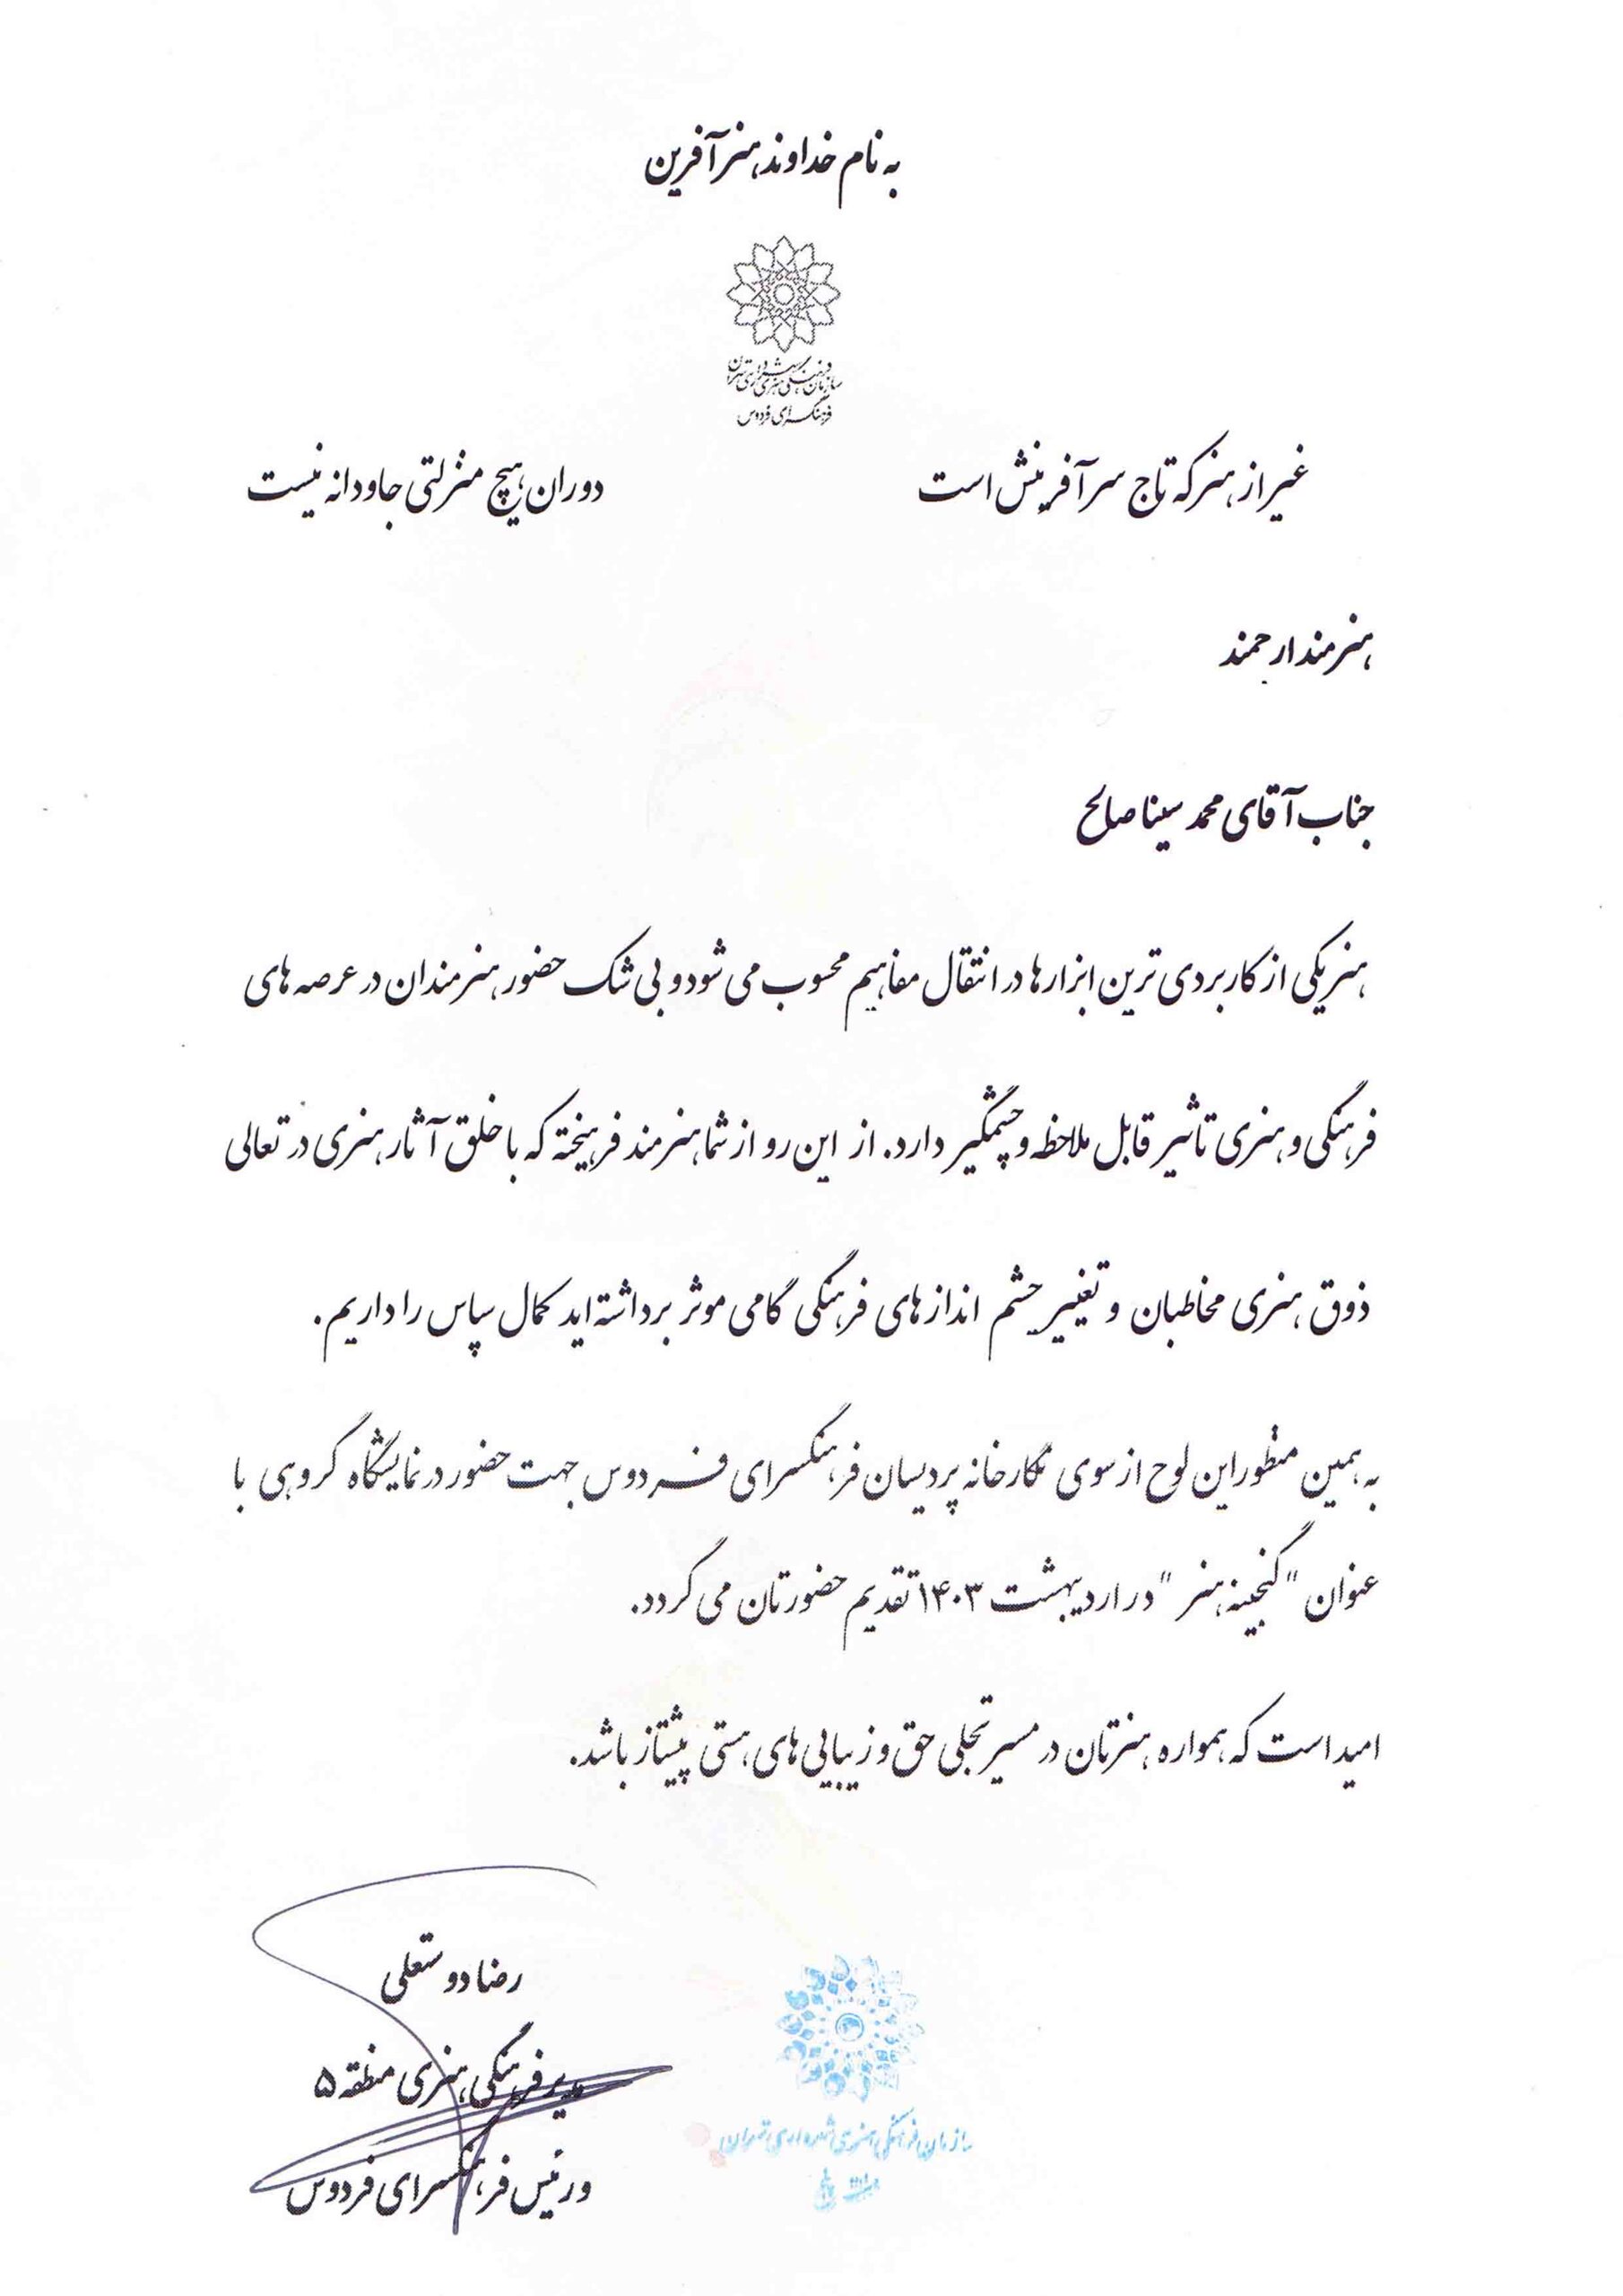 به نام خداوند هنرآفرین
سازمان فرهنگی هنری شهرداری تهران
فرهنگسرای فردوس
غیر از هنر که تاج سر آفرینش است دوران هیچ منزلتی جاودانه نیست
هنرمند ارجمند
جناب آقای محمد سینا صالح
هنر یکی از کاربردی ترین ابزارها در انتقال مفاهیم محسوب می شود و بی شک حضور هنرمندان در عرصه های
فرهنگی و هنری تاثیر قابل ملاحظه و چشمگیر دارد. از این رو از شما هنرمند فرهیخته که با خلق آثار هنری در تعالی
ذوق هنری مخاطبان و تغییر چشم اندازهای فرهنگی گامی موثر برداشته اید کمال سپاس را داریم.
به همین منظور این لوح از سوی نگارخانه پردیسان فرهنگسرای فردوس جهت حضور در نمایشگاه گروهی با
عنوان "گنجینه هنر" در اردیبهشت ۱۴۰۳ تقدیم حضورتان می گردد.
امید است که همواره هنرتان در مسیر تجلی حق و زیبایی های هستی پیشتاز باشد.
رضا دوستعلی
مدیر فرهنگی هنری منطقه ۵
و رئیس فرهنگسرای فردوس
سازمان فرهنگی هنری شهرداری تهران